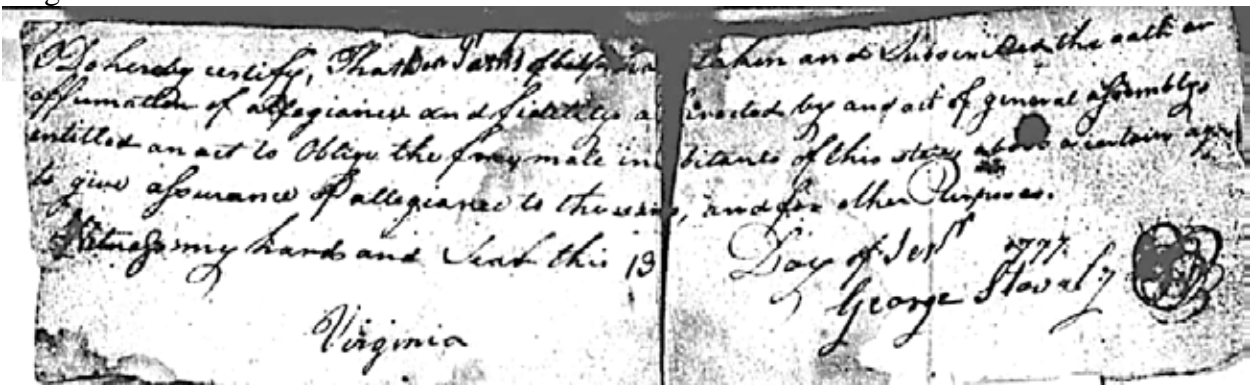 I Do hereby certify, That of taken and Subscribed the oath or
affirmation of allegiance and fidelity a directed by and act of general assembly
entitled an act to Oblige the free male in bitants of this state above a certain age
to give assurance of allegiance to the same, and for other Purposes.
Witness my hand and Seal this 13 Day of Sept 1777.
George Stovall
Virginia